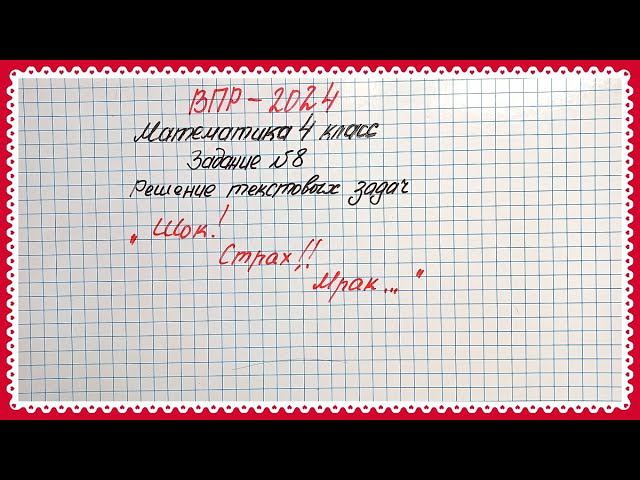 ВПР - 2024
Математика 4 класс
Задание №8
Решение текстовых задач
„Шок!
Страх!!
Мрак..."